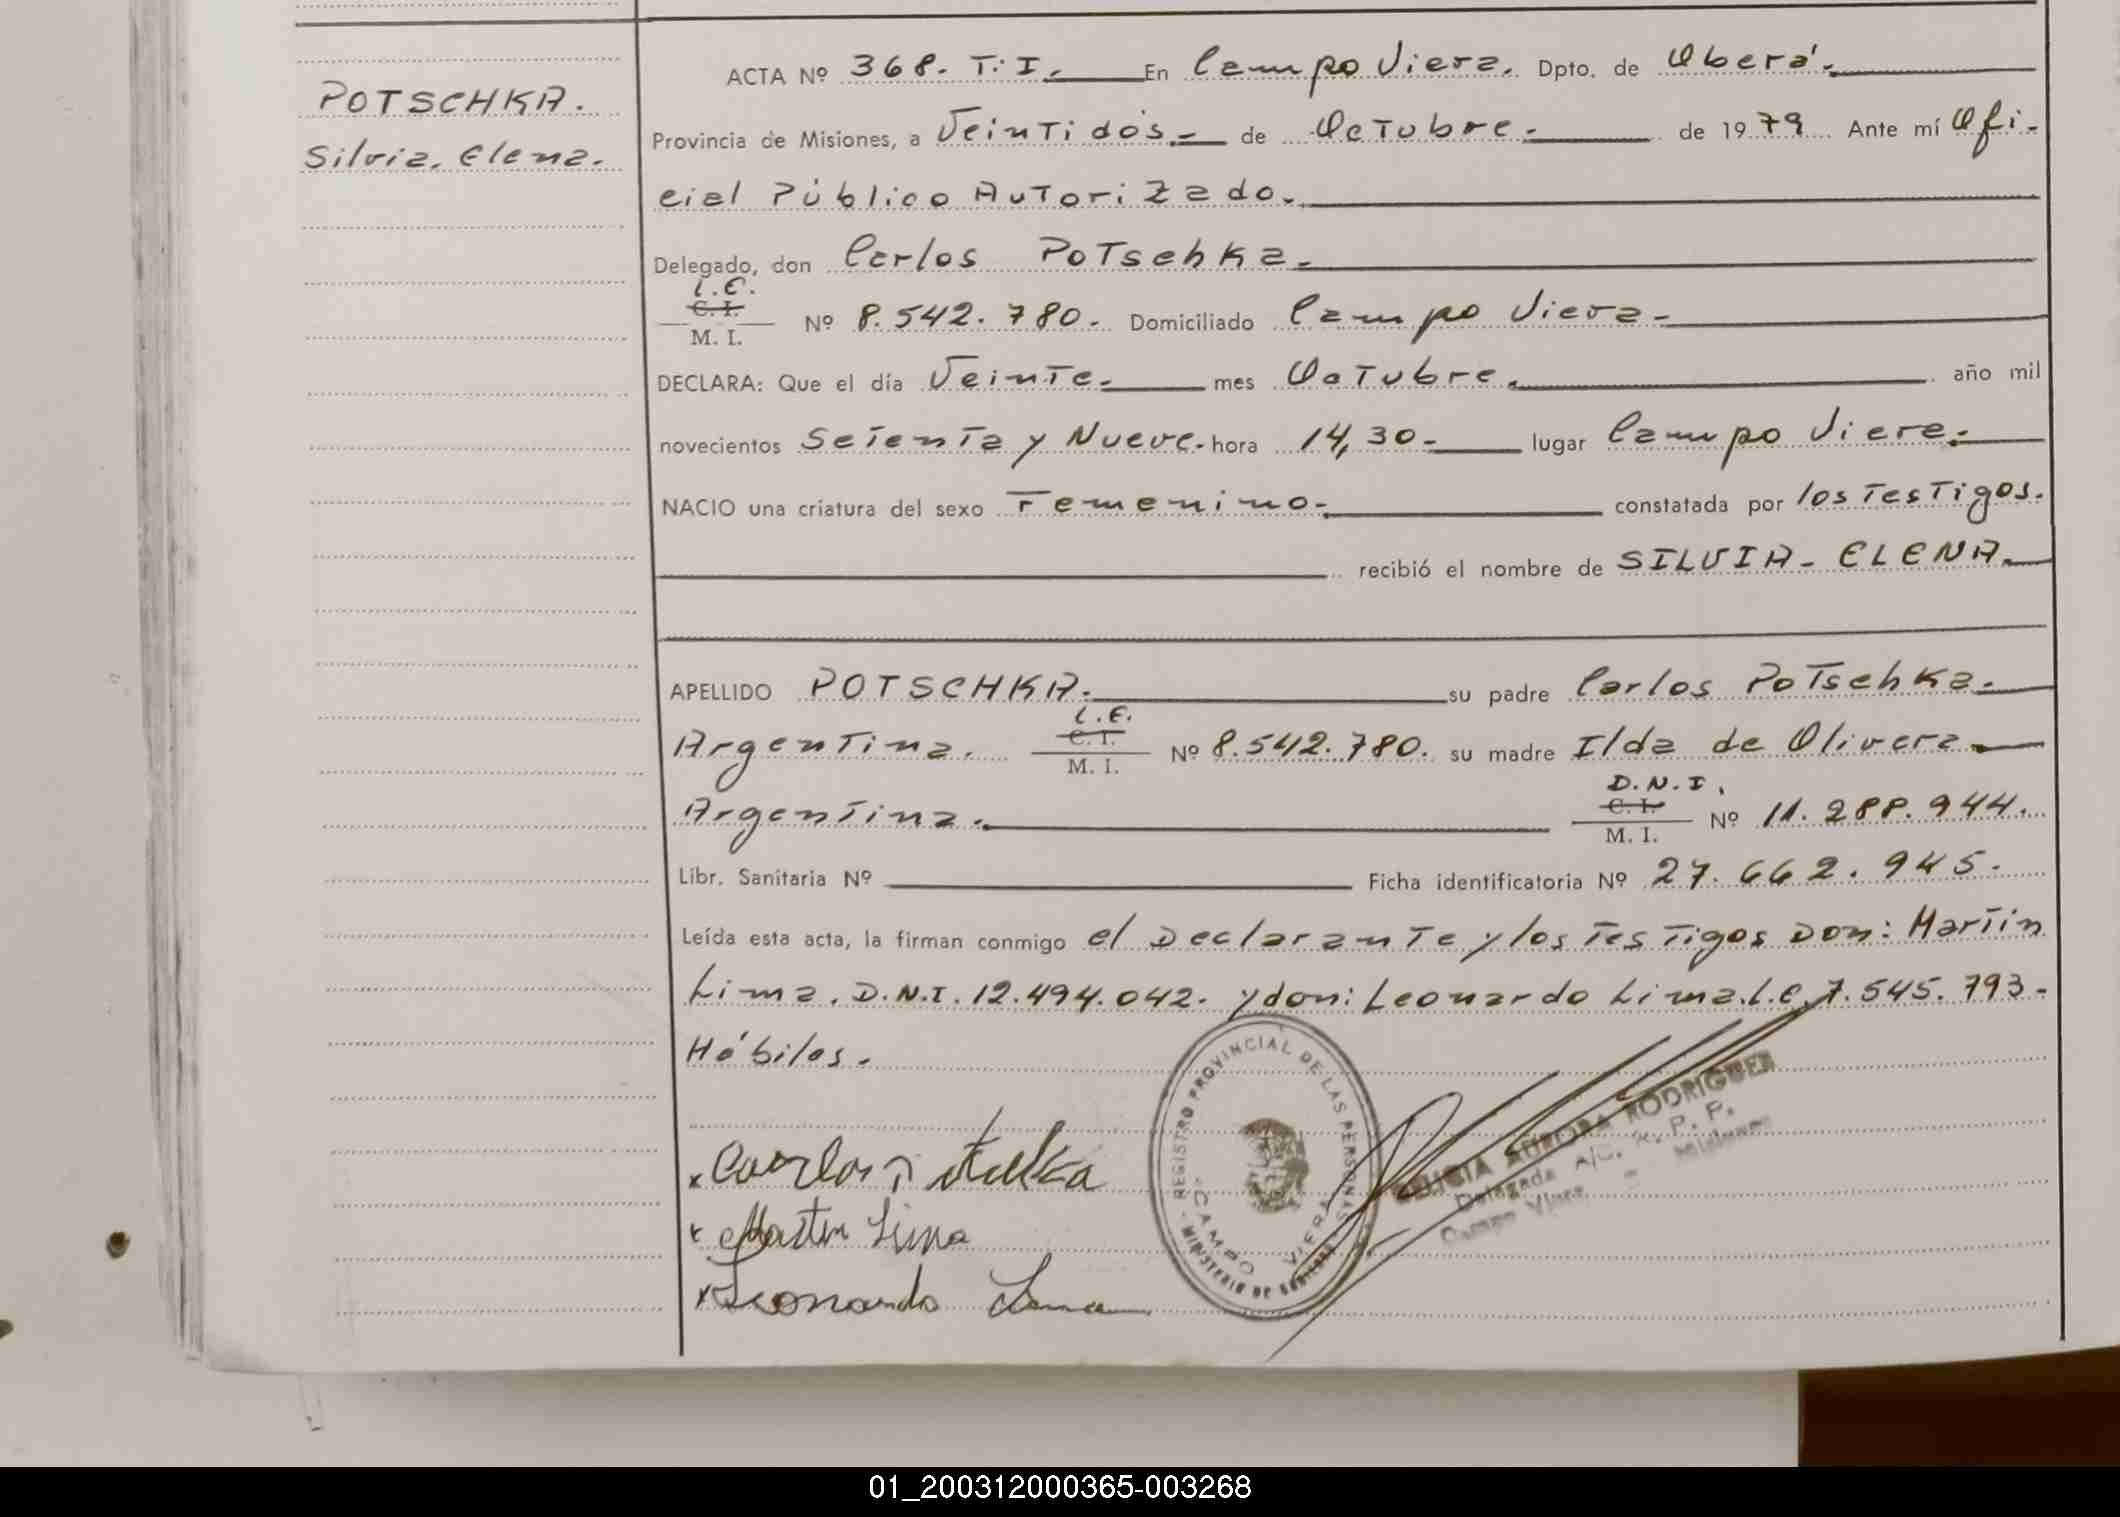 POTSCHKA.
Silvia, Elena.
ACTA Nº 368. T. I. En Campo Viera. Dpto. de Oberá.
Provincia de Misiones, a Veintidós de Octubre de 1979 Ante mí Ofi-
cial Público Autorizado.
Delegado, don Carlos Potschka.
L.E.
C. I.
M. I. Nº 8.542.780. Domiciliado Campo Viera
DECLARA: Que el día Veinte mes Octubre año mil
novecientos Setenta y Nueve. hora 14,30 lugar Campo Viera.
NACIO una criatura del sexo Femenino. constatada por los Testigos.
recibió el nombre de SILVIA - ELENA.
APELLIDO POTSCHKA. su padre Carlos Potschka.
L.E.
Argentina. C. I. Nº 8.542.780. su madre Ilda de Olivera
M. I.
D.N.I.
Argentina. C. I. Nº 11.288.944.
M. I.
Libr. Sanitaria Nº Ficha identificatoria Nº 27.662.945.
Leída esta acta, la firman conmigo el Declarante y los Testigos Don: Martin
Lima. D.N.I. 12.494.042. y don: Leonardo Lima. L.E. 7.545.793-
Hábiles.
REGISTRO PROVINCIAL DE LAS PERSONAS
CAMPO VIERA
MINISTERIO DE
AURORA RODRIGUEZ
Delegada A/C. R. P. P.
Campo Viera - Misiones
x Carlos
x Martin Lima
x Leonardo Lima
01_200312000365-003268